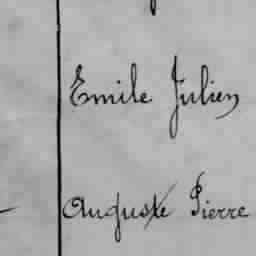 Emile Julien
Auguste Pierre